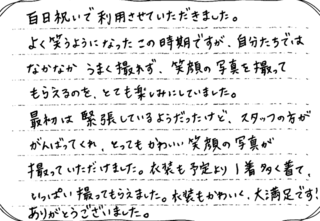 百日祝いで利用させていただきました。
よく笑うようになったこの時期ですが、自分たちでは
なかなかうまく撮れず、笑顔の写真を撮って
もらえるのを、とても楽しみにしていました。
最初は緊張しているようだったけど、スタッフの方が
がんばってくれ、とってもかわいい笑顔の写真が
撮っていただけました。衣装も予定より1着多く着て、
いっぱい撮ってもらえました。衣装もかわいく、大満足です!
ありがとうございました。